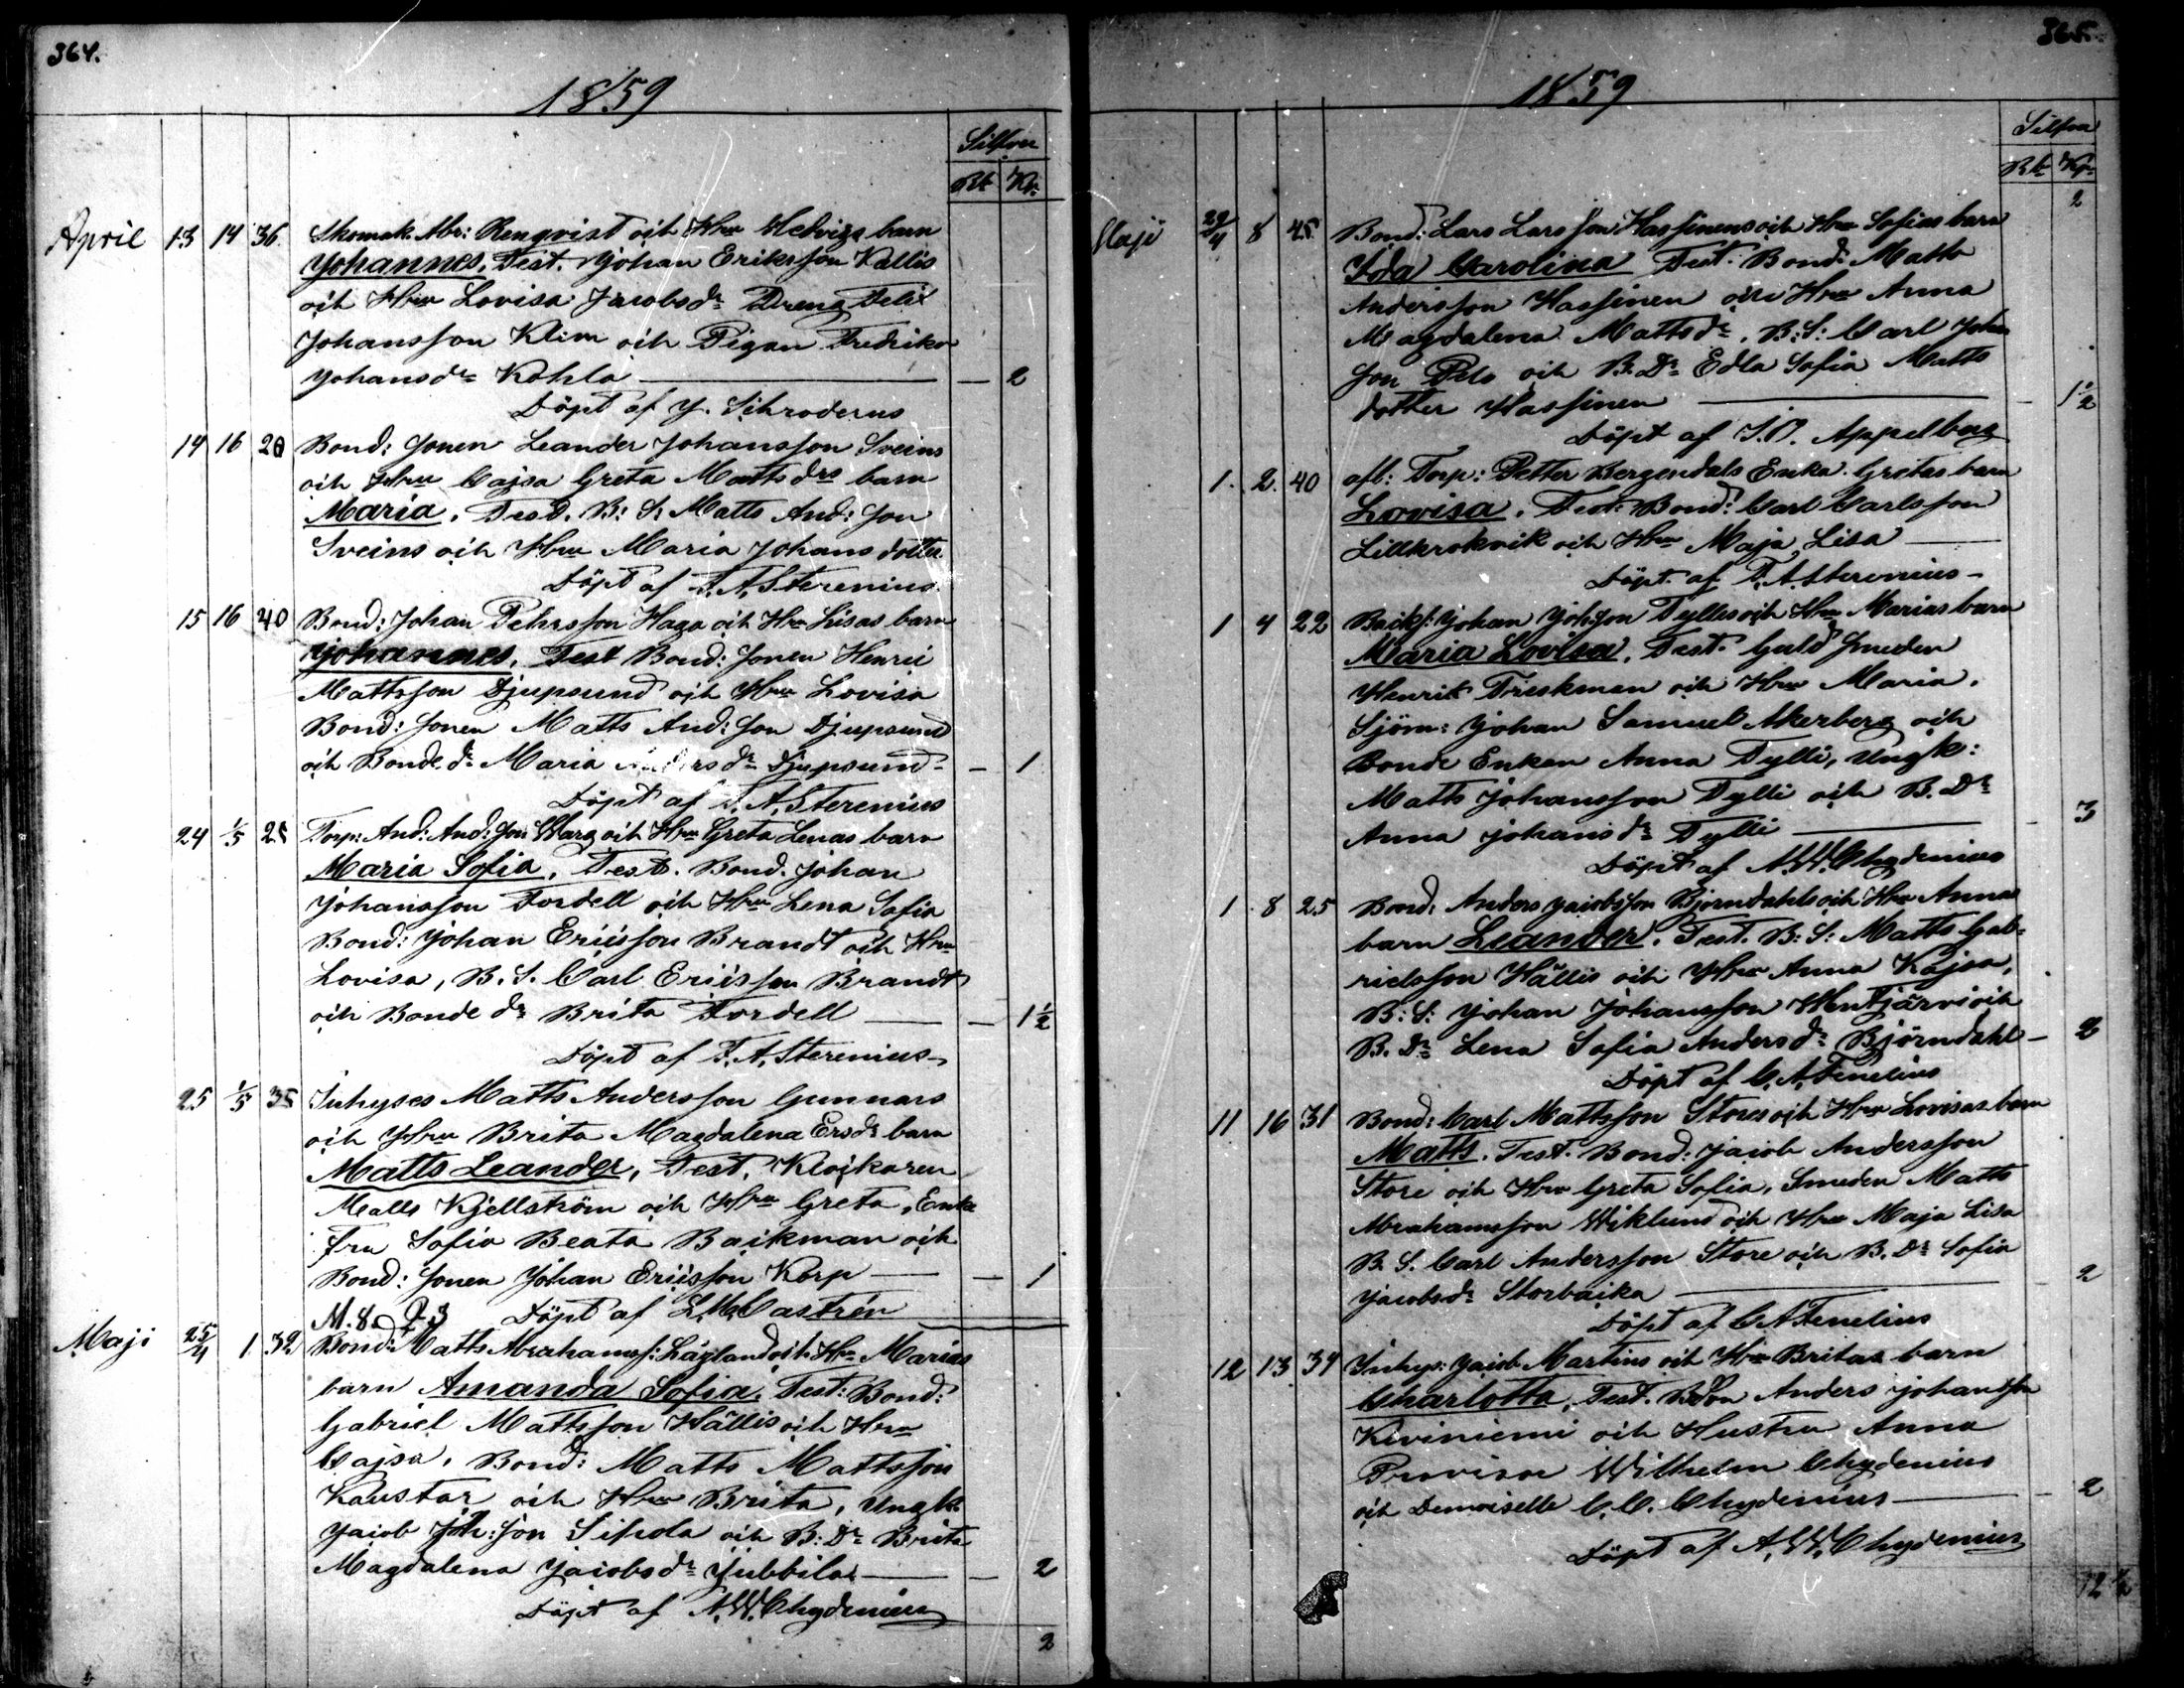 364.
1859
Silfver
Rbl Kp.
April 13 14 36. Skomak. Abr: Renqvist och Hru Hedvigs barn
Johannes. Test. Johan Eriksson Kallis
och Hru Lovisa Jacobsdr Dreng Felix
Johansson Klim och Pigan Fredrika
Johansdr Kahla — — 2
Döpt af J. Schroderus
14 16 20 Bond: Sonen Leander Johansson Sveins
och Hru Cajsa Greta Mattsdrs barn
Maria. Test. B: S: Matts And: Son
Sveins och Hru Maria Johans dotter
Döpt af F. A. Sterenius.
15 16 40 Bond: Johan Pehrsson Haga och Hru Lisas barn
Johannes. Test Bond: Sonen Henric
Mattsson Djupsund och Hru Lovisa
Bond: Sonen Matts And: Son Djupsund
och Bonde dr Maria Andersdr Djupsund — 1
Döpt af F. A. Sterenius
24 1/5 25 Torp: And: And: Son Warg och Hru Greta Lenas barn
Maria Sofia. Test. Bond. Johan
Johansson Fordell och Hru Lena Sofia
Bond: Johan Ericsson Brandt och Hru
Lovisa, B. S. Carl Ericsson Brandt
och Bonde dr Brita Fordell — — 1 1/2
Döpt af F. A. Sterenius
25 1/5 35 Inhyses Matts Andersson Gunnars
och Hru Brita Magdalena Ersdr barn
Matts Leander, Test.
Matts Kjellström och Hru Greta, Enke
fru Sofia Beata Backman och
Bond: Sonen Johan Ericsson Korp — — 1
M. 8. Q. 3 Döpt af L. M. Castrén
Maji 25/4 1 32 Bond: Matts Abrahamss: Lågland och Hru Marias
barn Amanda Sofia. Test: Bond:
Gabriel Mattsson Hällis och Hru
Cajsa. Bond: Matts Mattsson
Kaustar och Hru Brita, Ungk.
Jacob Joh: Son Sipola och B: Dr Brita
Magdalena Jacobsdr Jubbila — — 2
Döpt af A. W. Chydenius
2
365.
1859
Silfver
Rbl Kp.
2
Maji 29/4 8 45 Bond: Lars Larsson Hassinens och Hru Sofias barn
Ida Carolina Test. Bond: Matts
Andersson Hassinen och Hru Anna
Magdalena Mattsdr. B: S: Carl Johan
Son Pelo och B. Dr Edla Sofia Matts
dotter Hassinen — — 1 1/2
Döpt af J. O. Appelberg
1. 2. 40 afl: Torp: Petter Bergendals Enka Gretas barn
Lovisa. Test: Bond: Carl Carlsson
Lillkrokvik och Hru Maja Lisa —
Döpt af F. A. Sterenius —
1 4 22 Backs: Johan Joh:Son Tyllis och Hru Marias barn
Maria Lovisa. Test. Guld Smeden
Henrik Frieskman och Hru Maria.
Sjöm: Johan Samuel Åkerberg och
Bonde Enkan Anna Tylli, Ungk:
Matts Johansson Tylli och B. Dr
Anna Johansdr Tylli — — 3
Döpt af A. W. Chydenius
1 8 25 Bond: Anders Jacobsson Björndahls och Hru Annas
barn Leander. Test. B: S: Matts Gab-
rielsson Hällis och Hru Anna Kajsa,
B: S: Johan Johansson Hentjärvi och
B. Dr Lena Sofia Andersdr Björndahl — 2
Döpt af C. A. Fenelius
11 16 31 Bond: Carl Mattsson Stores och Hru Lovisas barn
Matts. Test. Bond: Jacob Andersson
Store och Hru Greta Sofia, Smeden Matts
Abrahamsson Wiklund och Hru Maja Lisa
B. S. Carl Andersson Store och B. Dr Sofia
Jacobsdr Storbacka — — 2
Döpt af C. A. Fenelius
12 13 34 Inhys: Jacob Martins och Hru Britas barn
Charlotta. Test. Bdon Anders Johansson
Kiviniemi och Hustru Anna
Provisor Wilhelm Chydenius
och Demoiselle C. C. Chydenius — — 2
Döpt af A. W. Chydenius
12 1/2